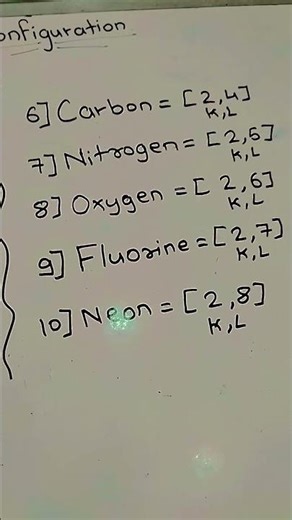 onfiguration
6] Carbon = [2,4]
K,L
7] Nitrogen = [2,5]
K,L
8] Oxygen = [2,6]
K,L
9] Fluorine = [2,7]
K,L
10] Neon = [2,8]
K,L